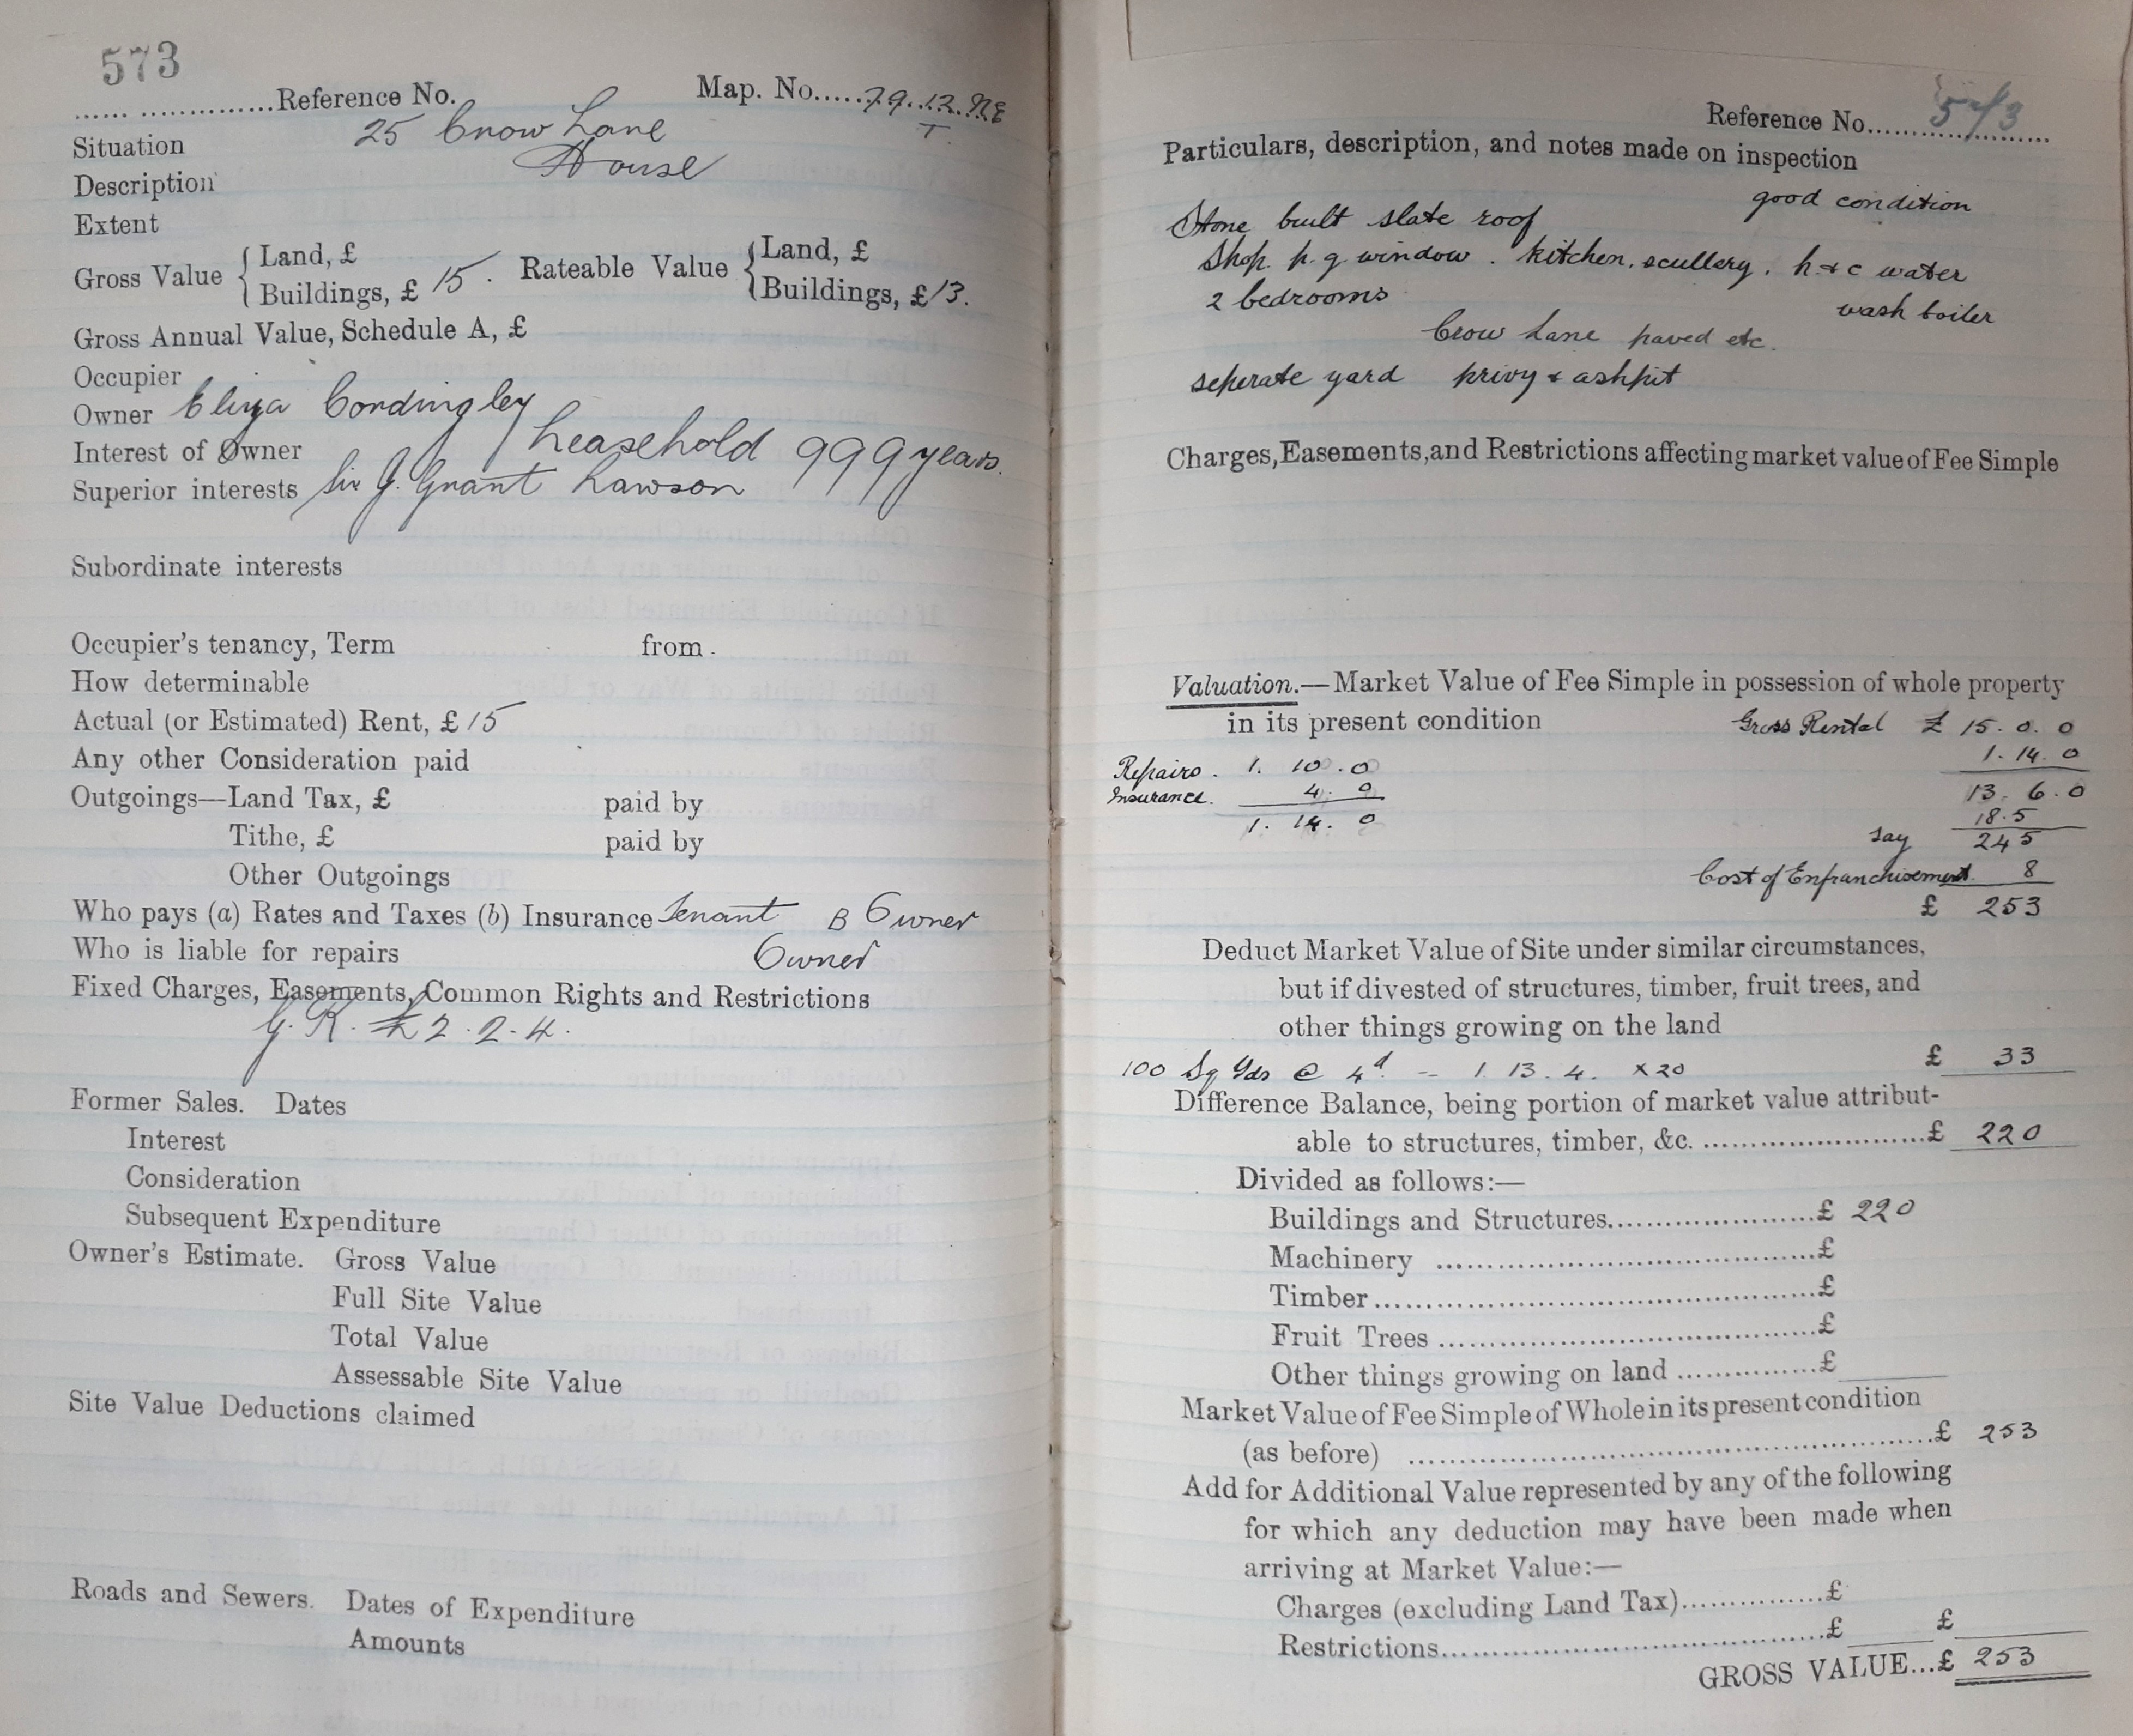 573
...... .............Reference No. Map. No.....79.12.NE
T
Situation 25 Crow Lane
Description House
Extent
Gross Value { Land, £
Buildings, £ 15. Rateable Value { Land, £
Buildings, £13.
Gross Annual Value, Schedule A, £
Occupier
Owner Eliza Cordingley
Interest of Owner Leasehold 999 years.
Superior interests Sir J. Grant Lawson
Subordinate interests
Occupier's tenancy, Term from
How determinable
Actual (or Estimated) Rent, £ 15
Any other Consideration paid
Outgoings—Land Tax, £ paid by
Tithe, £ paid by
Other Outgoings
Who pays (a) Rates and Taxes (b) Insurance Tenant B Owner
Who is liable for repairs Owner
Fixed Charges, Easements, Common Rights and Restrictions
G. R. £2.2.4.
Former Sales. Dates
Interest
Consideration
Subsequent Expenditure
Owner's Estimate. Gross Value
Full Site Value
Total Value
Assessable Site Value
Site Value Deductions claimed
Roads and Sewers. Dates of Expenditure
Amounts
Reference No. 573
Particulars, description, and notes made on inspection
good condition
Stone built slate roof
Shop. p. g. window. kitchen, scullery, h & c water
2 bedrooms wash boiler
Crow Lane paved etc.
seperate yard privy & ashpit
Charges, Easements, and Restrictions affecting market value of Fee Simple
Valuation.—Market Value of Fee Simple in possession of whole property
in its present condition Gross Rental £ 15. 0. 0
Repairs. 1. 10. 0 1. 14. 0
Insurance. 4. 0 13. 6. 0
1. 14. 0 18.5
say 245
Cost of Enfranchisement 8
£ 253
Deduct Market Value of Site under similar circumstances,
but if divested of structures, timber, fruit trees, and
other things growing on the land
100 Sq Yds @ 4d — 1. 13. 4. x20 £ 33
Difference Balance, being portion of market value attribut-
able to structures, timber, &c. ........................£ 220
Divided as follows:—
Buildings and Structures.......................£ 220
Machinery .........................................£
Timber................................................£
Fruit Trees .........................................£
Other things growing on land ...............£
Market Value of Fee Simple of Whole in its present condition
(as before) .........................................................£ 253
Add for Additional Value represented by any of the following
for which any deduction may have been made when
arriving at Market Value:—
Charges (excluding Land Tax)................£
Restrictions..........................................£ £
GROSS VALUE...£ 253